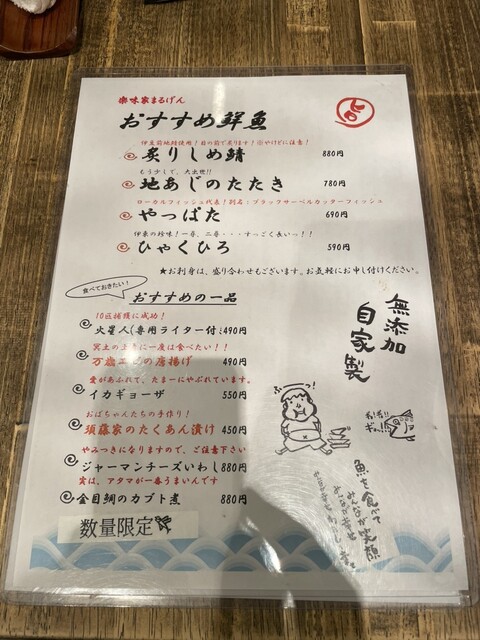 楽味家まるげん
おすすめ鮮魚
伊豆前地鯖使用！目の前で炙ります！※やけどに注意！
炙りしめ鯖 880円
もう少しで、大出世！！
地あじのたたき 780円
ローカルフィッシュ代表！別名：ブラックサーベルカッターフィッシュ
やっぱた 690円
伊東の珍味！一尋、二尋・・・すっごく長いっ！！
ひゃくひろ 590円
★お刺身は、盛り合わせもございます。お気軽にお申し付けください。
食べておきたい！
おすすめの一品
10匹捕獲に成功！
火星人(専用ライター付き 490円
冥土の土産に一度は食べたい！！
の唐揚げ 490円
愛があふれて、たまーにやぶれています。
イカギョーザ 550円
おばちゃんたちの手作り！
須藤家のたくあん漬け 450円
やみつきになりますので、ご注意下さい
ジャーマンチーズいわし 880円
実は、アタマが一番うまいんです
金目鯛のカブト煮 880円
数量限定
無添加
自家製
魚を食べて
みんなが笑顔